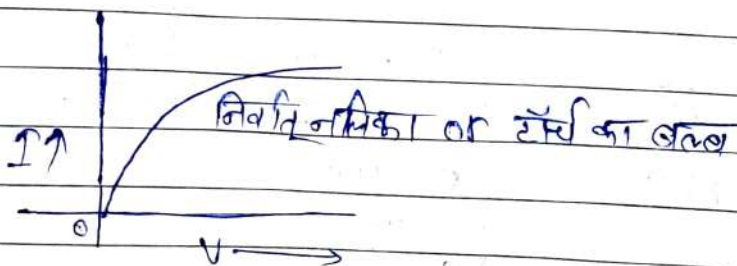 निर्वात् नलिका or टॉर्च का बल्ब
I↑
0
V→